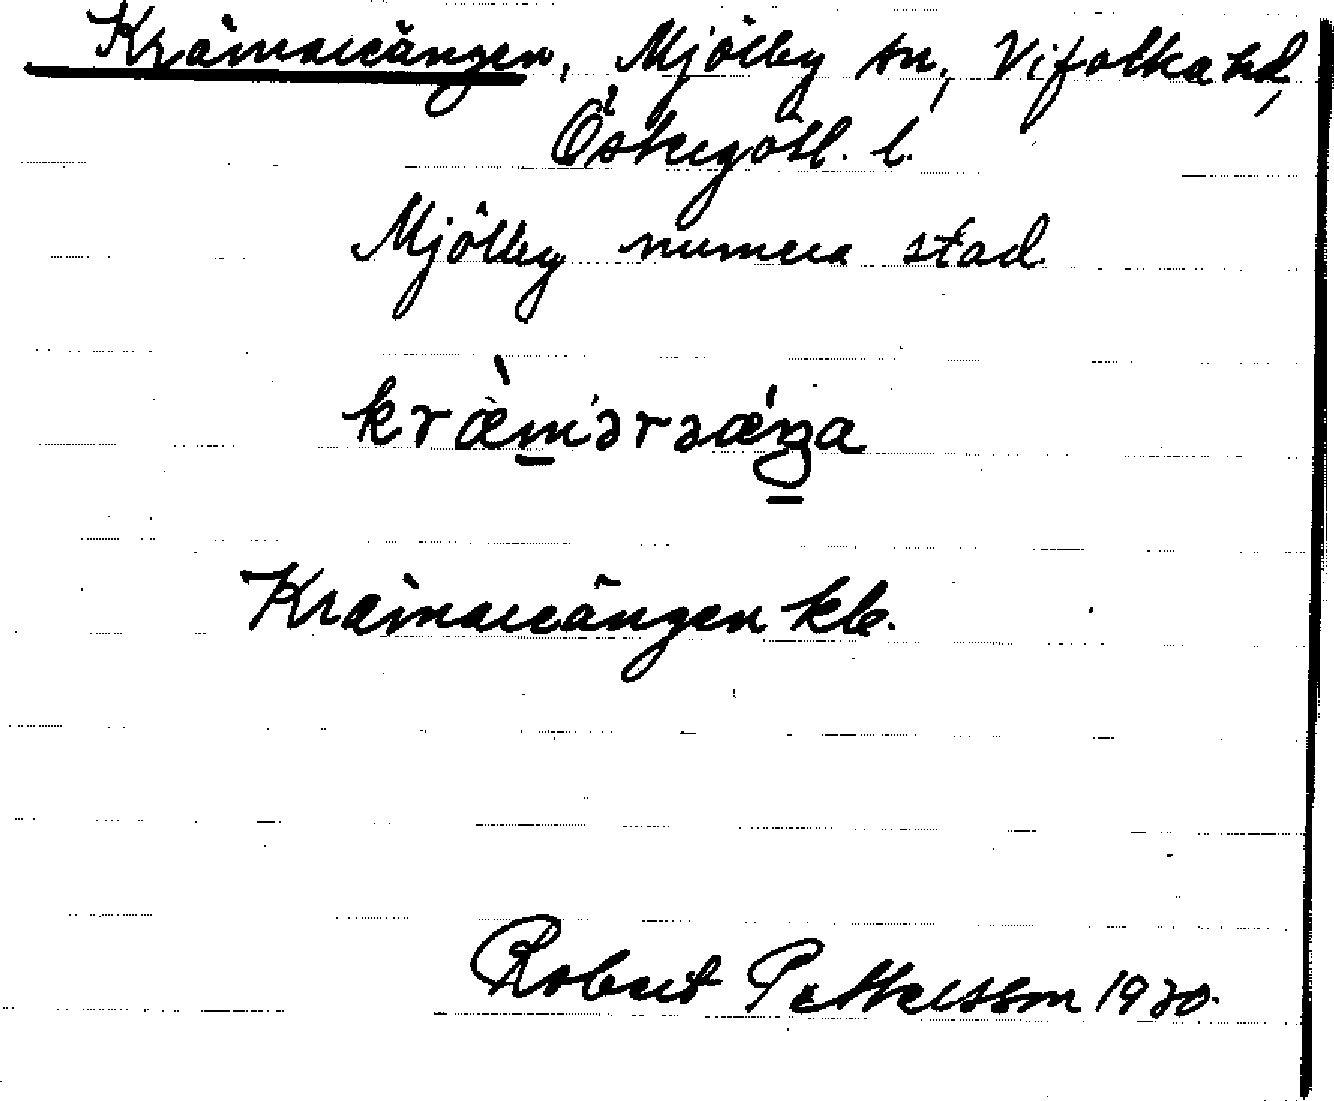 Krämareängen, Mjölby sn, Vifolka hd,
Östergötl. l.
Mjölby numera stad
kræ̀mərəǽŋa
Krämareängen kb.
Robert Pettersson 1930.